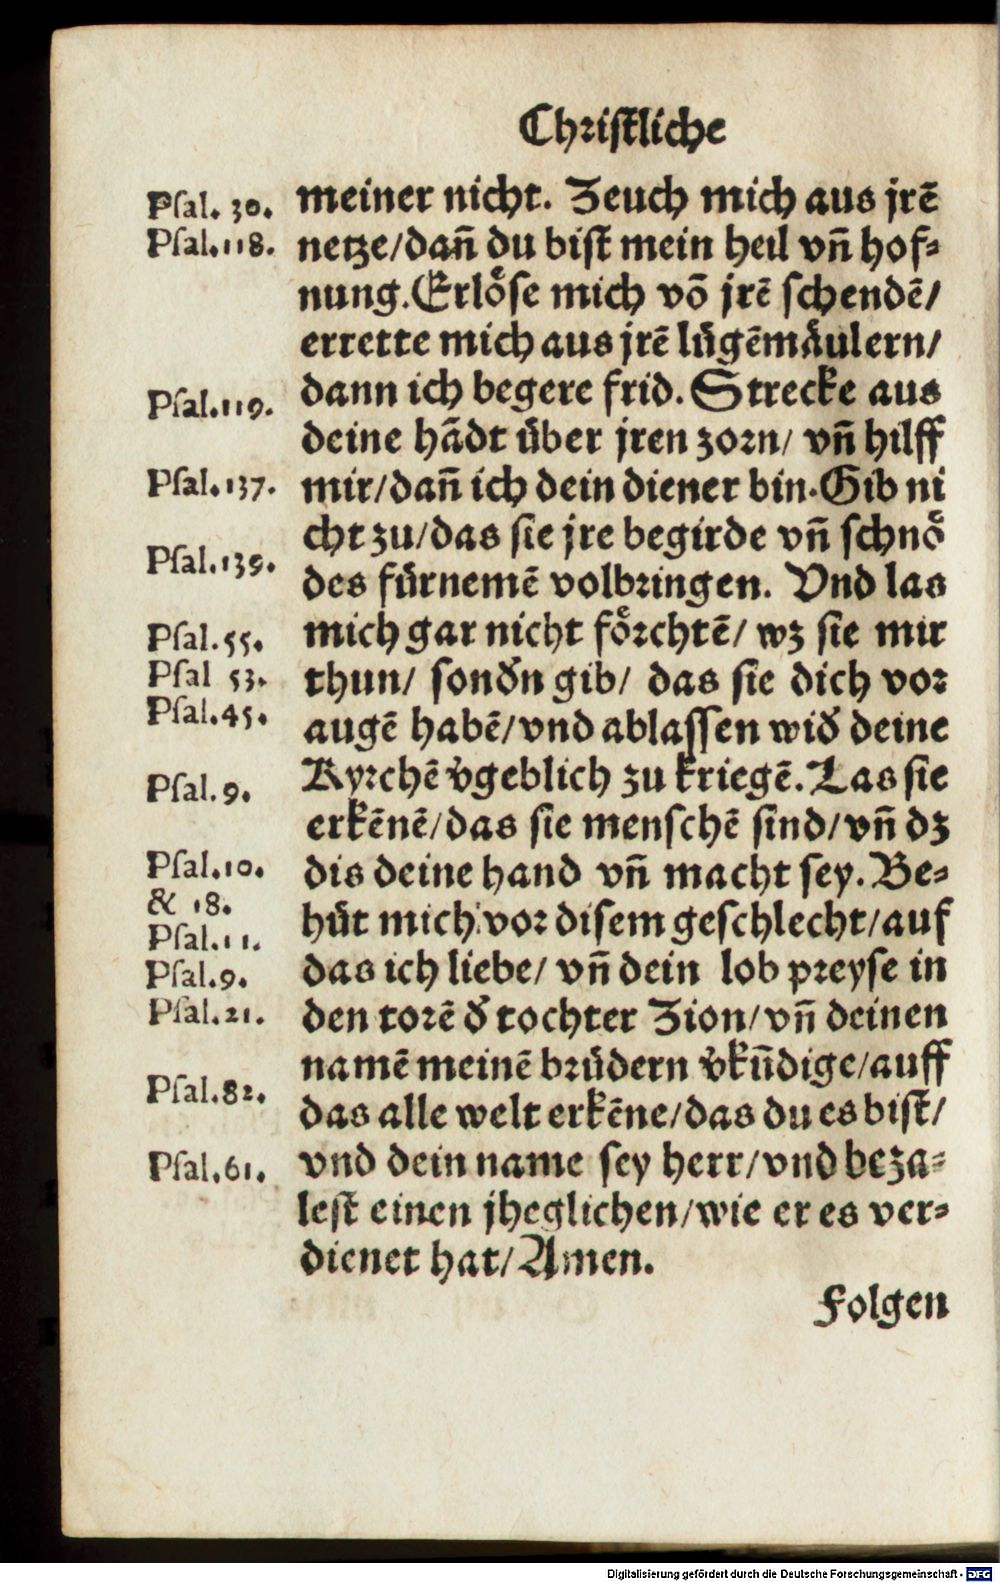 Christliche
Psal. 30. meiner nicht. Zeuch mich aus jrē
Psal.118. netze/dañ du bist mein heil vñ hof⸗
nung.Erlöse mich vō jrē schendē/
errette mich aus jrē lügēmäulern/
Psal.119. dann ich begere frid. Strecke aus
deine hādt über jren zorn/ vñ hilff
Psal.137. mir/dañ ich dein diener bin.Gib ni
cht zu/das sie jre begirde vñ schnö
Psal.139. des fürnemē volbringen. Vnd las
Psal.55. mich gar nicht förchtē/ wz sie mir
Psal 53. thun/ sonďn gib/ das sie dich vor
Psal.45. augē habē/vnd ablassen wiď deine
Psal.9. Kyrchē v̄geblich zu kriegē.Las sie
erkēnē/das sie menschē sind/vñ dz
Psal.10. dis deine hand vñ macht sey. Be⸗
& 18. hüt mich vor disem geschlecht/auf
Psal.11.
Psal.9. das ich liebe/ vñ dein lob preyse in
Psal.21. den torē ď tochter Zion/vñ deinen
namē meinē brüdern v̄kündige/auff
Psal.82. das alle welt erkēne/das du es bist/
Psal.61. vnd dein name sey herr/vnd beza⸗
lest einen jheglichen/wie er es ver⸗
dienet hat/Amen.
Folgen
Digitalisierung gefördert durch die Deutsche Forschungsgemeinschaft - DFG